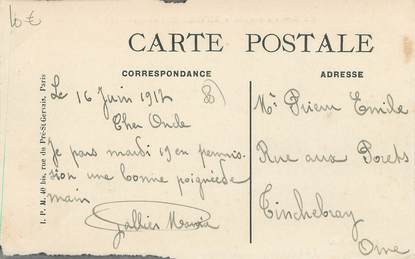 10€
CARTE POSTALE
CORRESPONDANCE
ADRESSE
I. P. M. 40 bis, rue du Pré-St-Gervais, Paris
Le 16 Juin 1917
Cher Oncle
Je pars mardi 19 en permis-
sion une bonne poignée de
main
Mr Prieur Emile
Rue aux Porets
Tinchebray
Orne